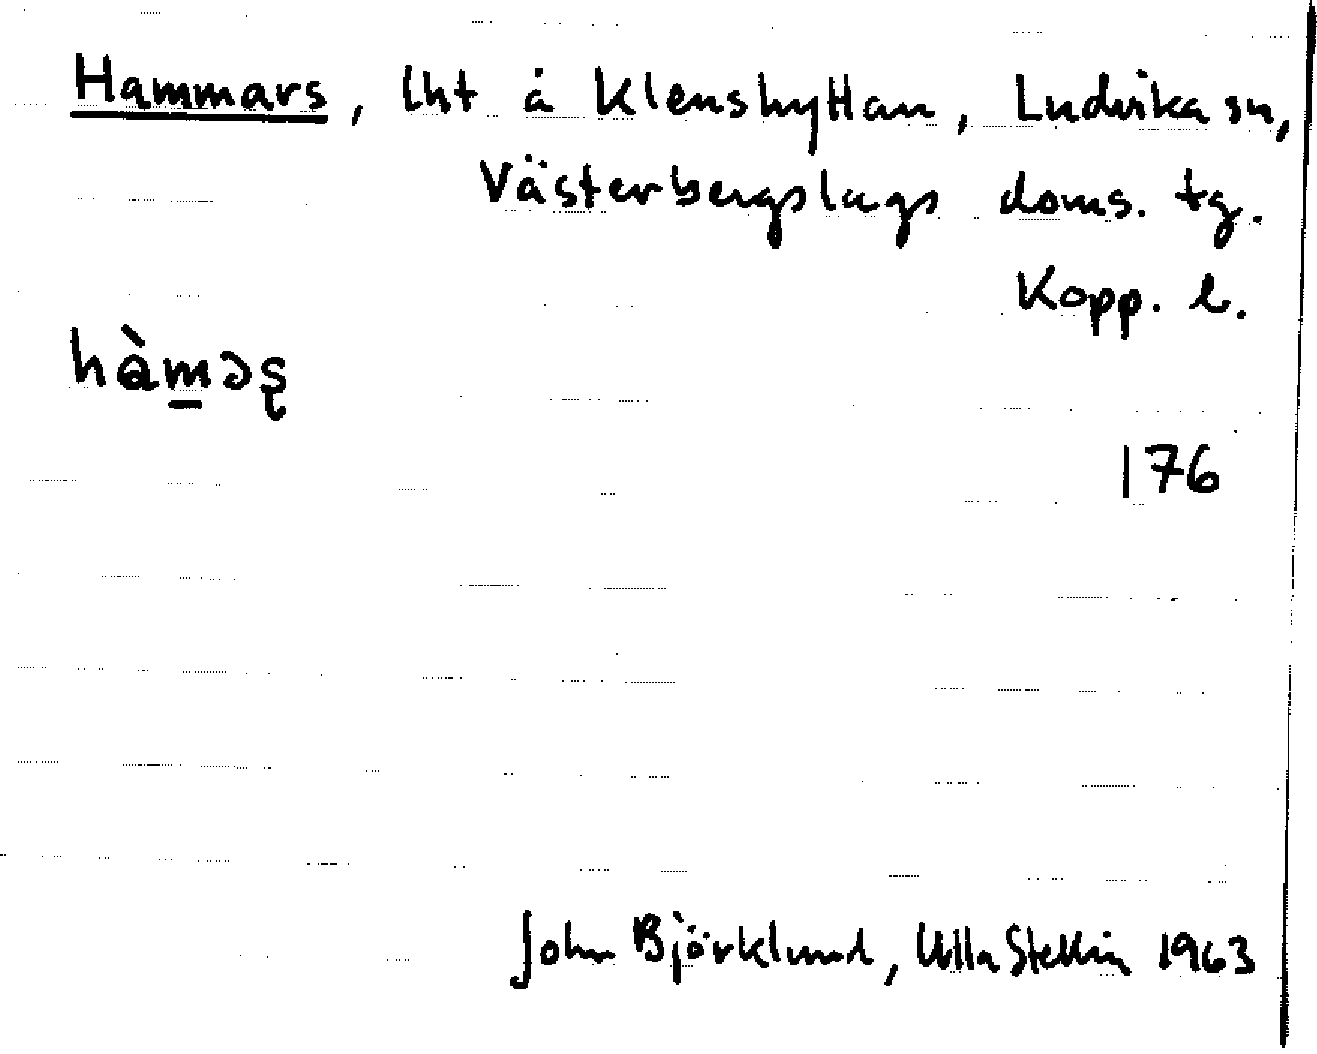 Hammars, lht å Klenshyttan, Ludvika sn,
Västerbergslags doms. tg.
Kopp. l.
hàm̲əʂ
176
John Björklund, Ulla Stellin 1963